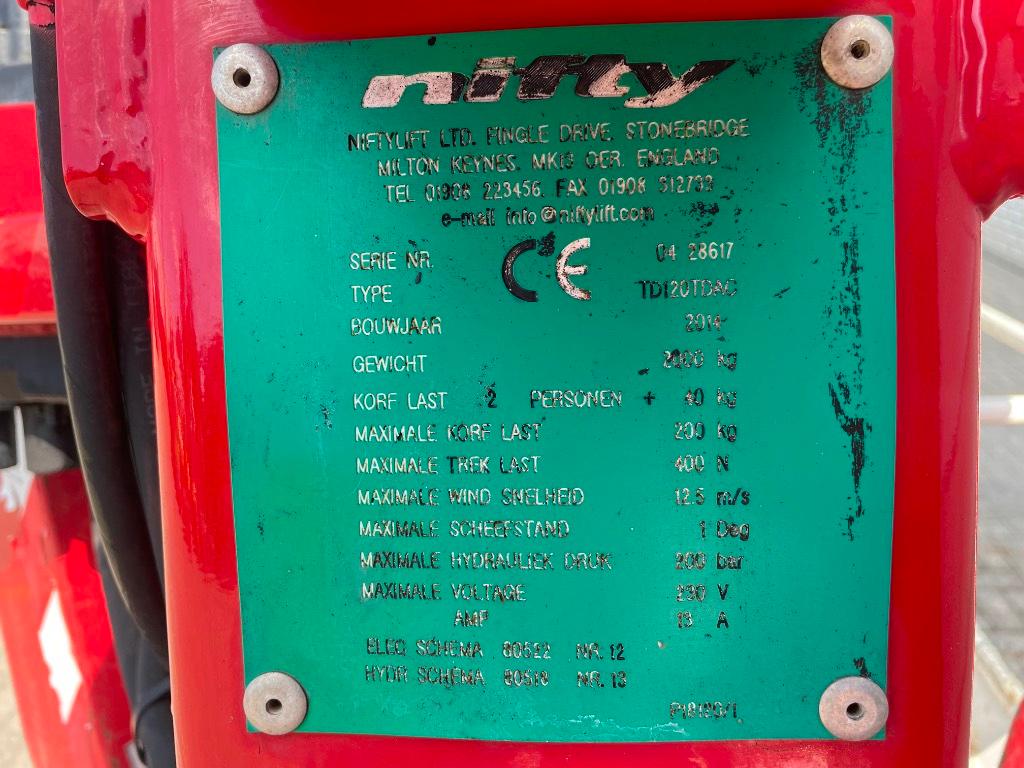 nifty
NIFTYLIFT LTD. FINGLE DRIVE. STONEBRIDGE
MILTON KEYNES. MK13 OER. ENGLAND
TEL 01908 223456. FAX 01908 312733
e-mail info@niftylift.com
CE
SERIE NR. 04 28617
TYPE TD120TDAC
BOUWJAAR 2014
GEWICHT 2000 kg
KORF LAST 2 PERSONEN + 40 kg
MAXIMALE KORF LAST 200 kg
MAXIMALE TREK LAST 400 N
MAXIMALE WIND SNELHEID 12.5 m/s
MAXIMALE SCHEEFSTAND 1 Deg
MAXIMALE HYDRAULIEK DRUK 200 bar
MAXIMALE VOLTAGE 230 V
AMP 13 A
ELEC SCHEMA 80522 NR. 12
HYDR SCHEMA 80518 NR. 13
P18120/1